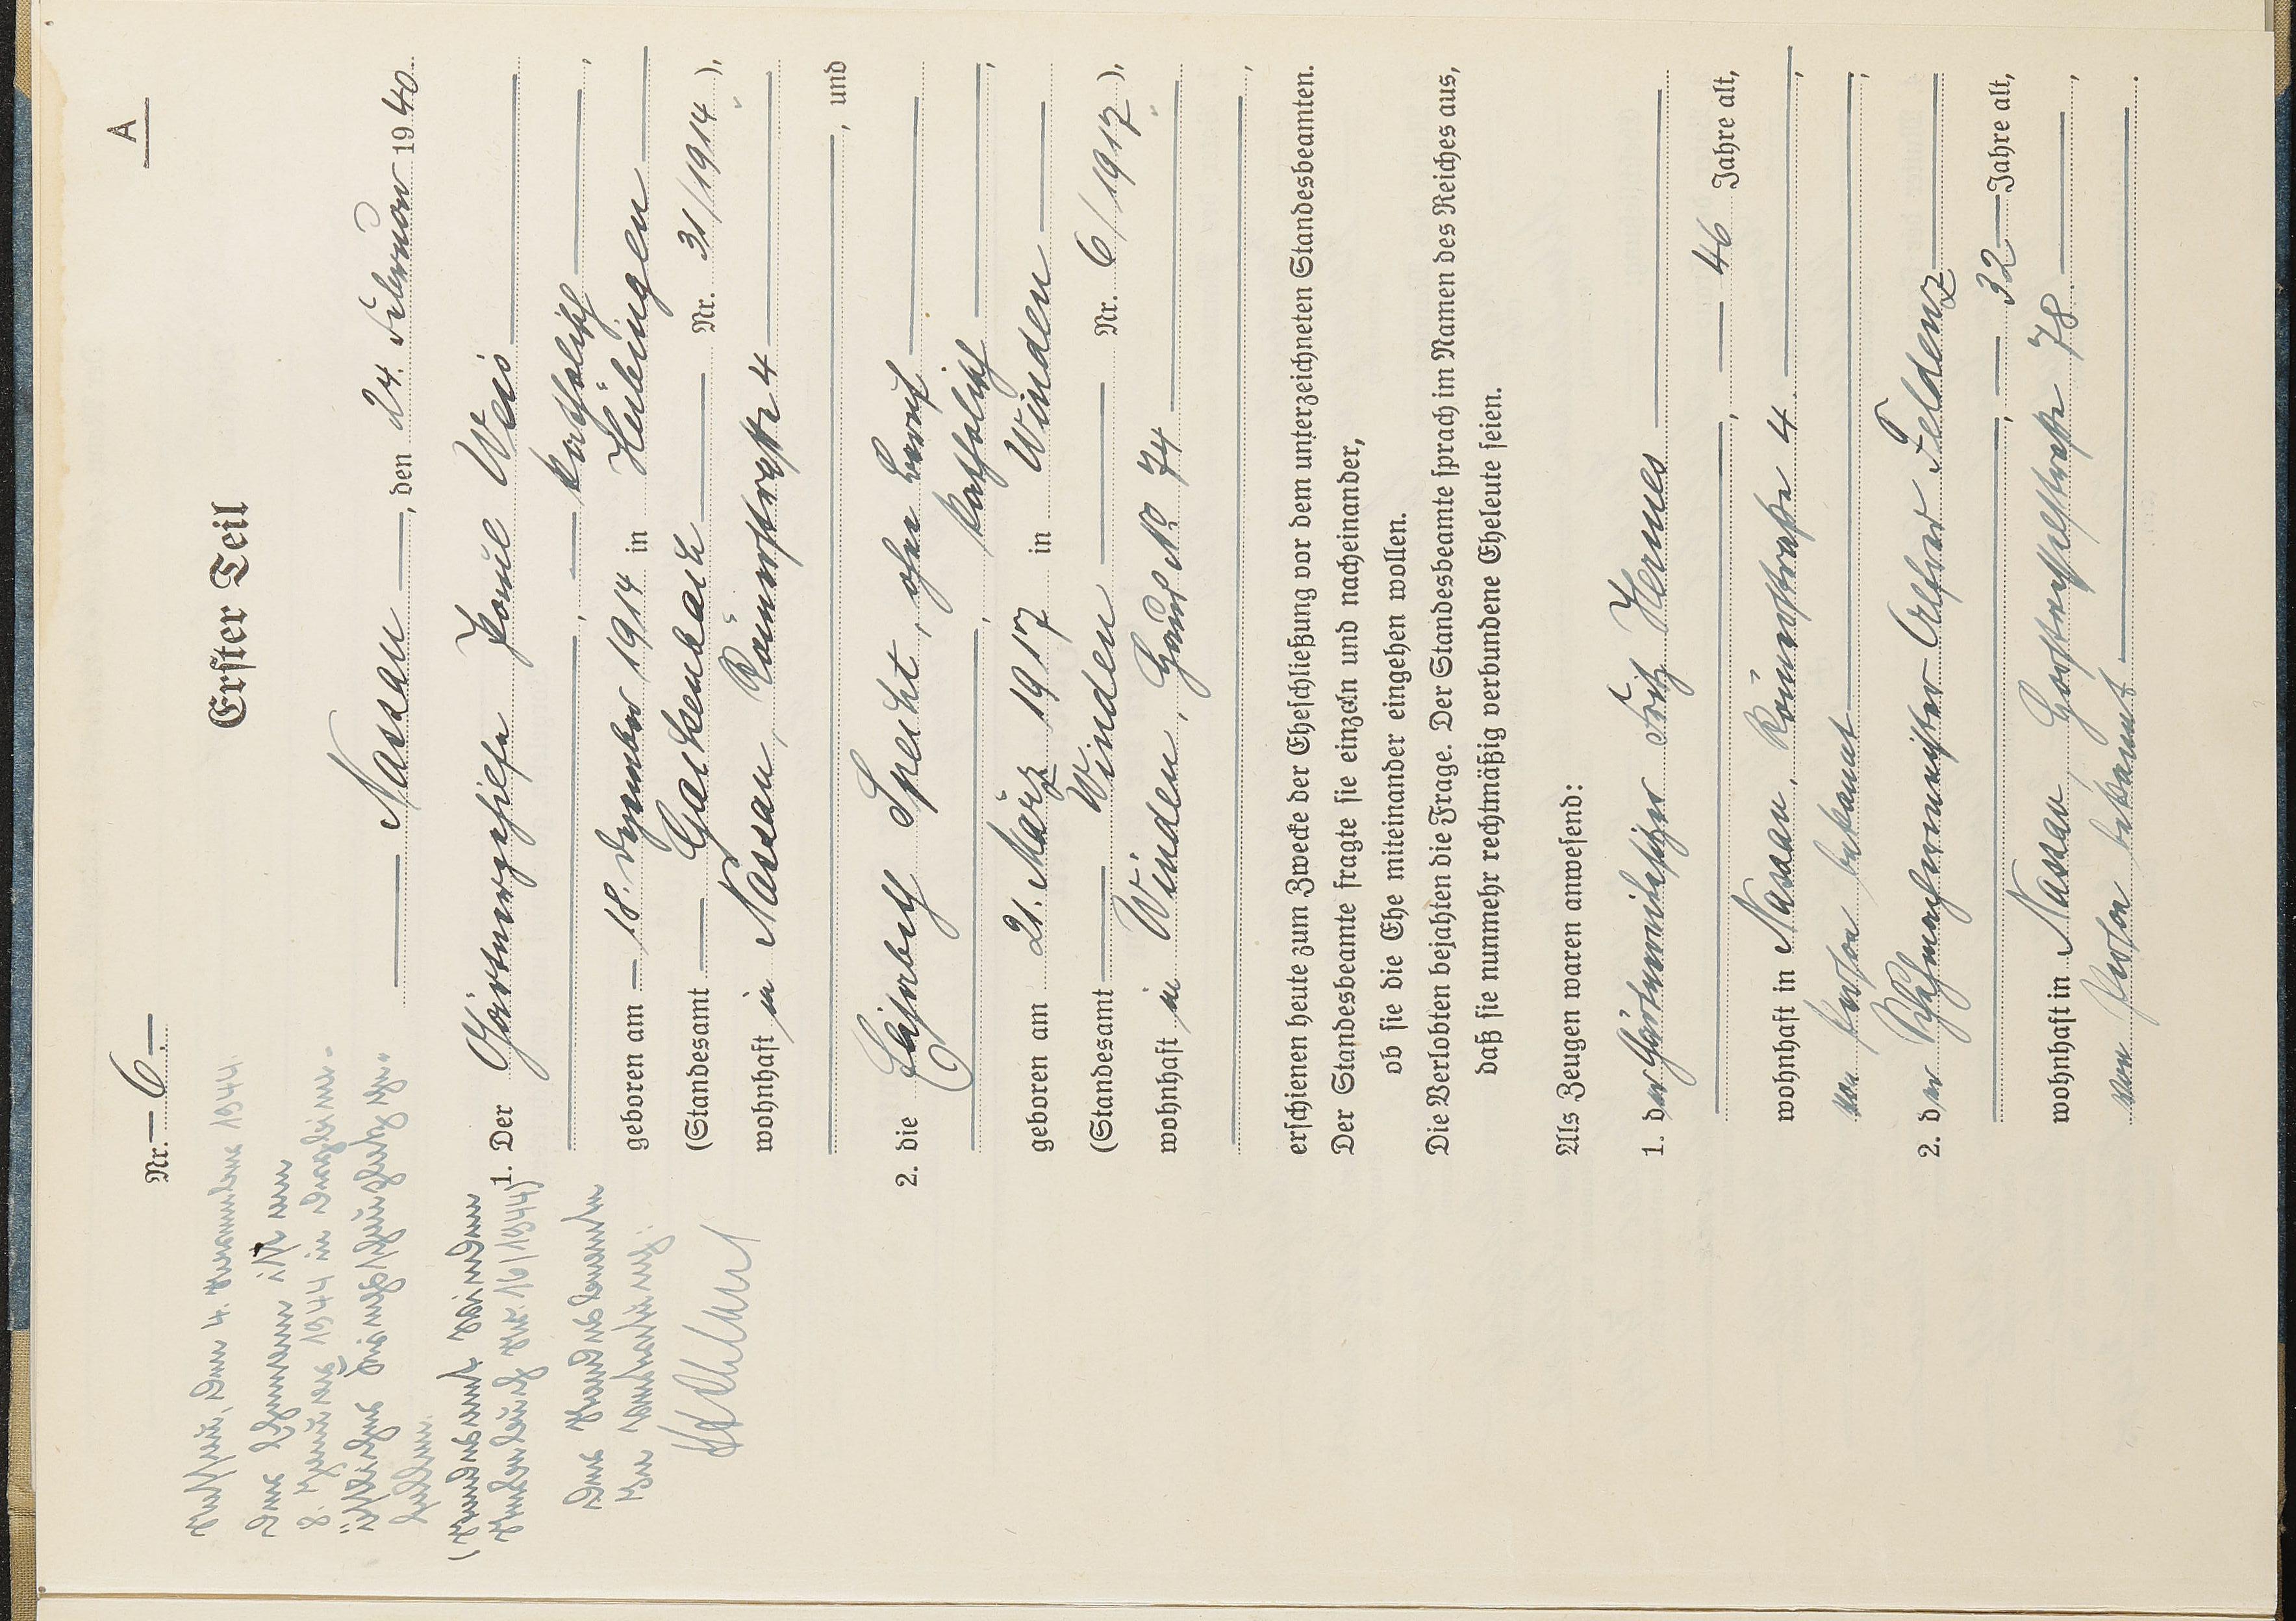 A
Nr. 6.
Erster Teil
Nassau, den 24. Februar 1940.
1. Der Gärtnergehilfe Paul Weis
, katholisch,
geboren am 18. Dezember 1914 in Helbingen
(Standesamt Gackenbach Nr. 31/1914),
wohnhaft in Nassau, Kaiserstraße 4
, und
2. die Specht, ohne Beruf
, katholisch,
geboren am 21. März 1917 in Winden
(Standesamt Winden Nr. 6/1917),
wohnhaft in Winden, Haus No 74
,
erschienen heute zum Zwecke der Eheschließung vor dem unterzeichneten Standesbeamten.
Der Standesbeamte fragte sie einzeln und nacheinander,
ob sie die Ehe miteinander eingehen wollen.
Die Verlobten bejahten die Frage. Der Standesbeamte sprach im Namen des Reiches aus,
daß sie nunmehr rechtmäßig verbundene Eheleute seien.
Als Zeugen waren anwesend:
1. der Gärtnereibesitzer Fritz Hermes
, 46 Jahre alt,
wohnhaft in Nassau, Kaiserstraße 4,
von Person bekannt,
2. der Schuhmachermeister Alfred Feldenz
, 32 Jahre alt,
wohnhaft in Nassau, 78,
von Person bekannt.
Nassau, den 4. November 1944.
Der Ehemann ist am
8. Januar 1944 in
östlichen Kriegsschauplatz ge-
fallen.
(Standesamt Winden
Nr. 16/1944)
Der Standesbeamte
In Vertretung: